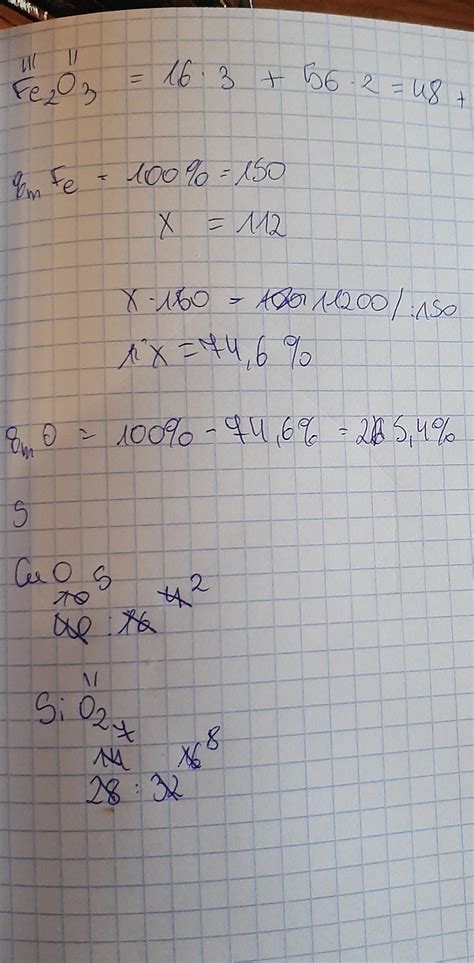 III II
Fe2O3 = 16 · 3 + 56 · 2 = 48 +
%m Fe = 100% = 150
x = 112
x · 150 = 11200 / : 150
x = 74,6 %
%m O = 100% - 74,6% = 25,4%
S
CaO 5
10 4 2
40 : 16
II
SiO2 7
14 16 8
28 : 32